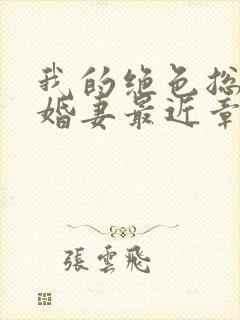 我的绝色总
婚妻最近章
張雲飛